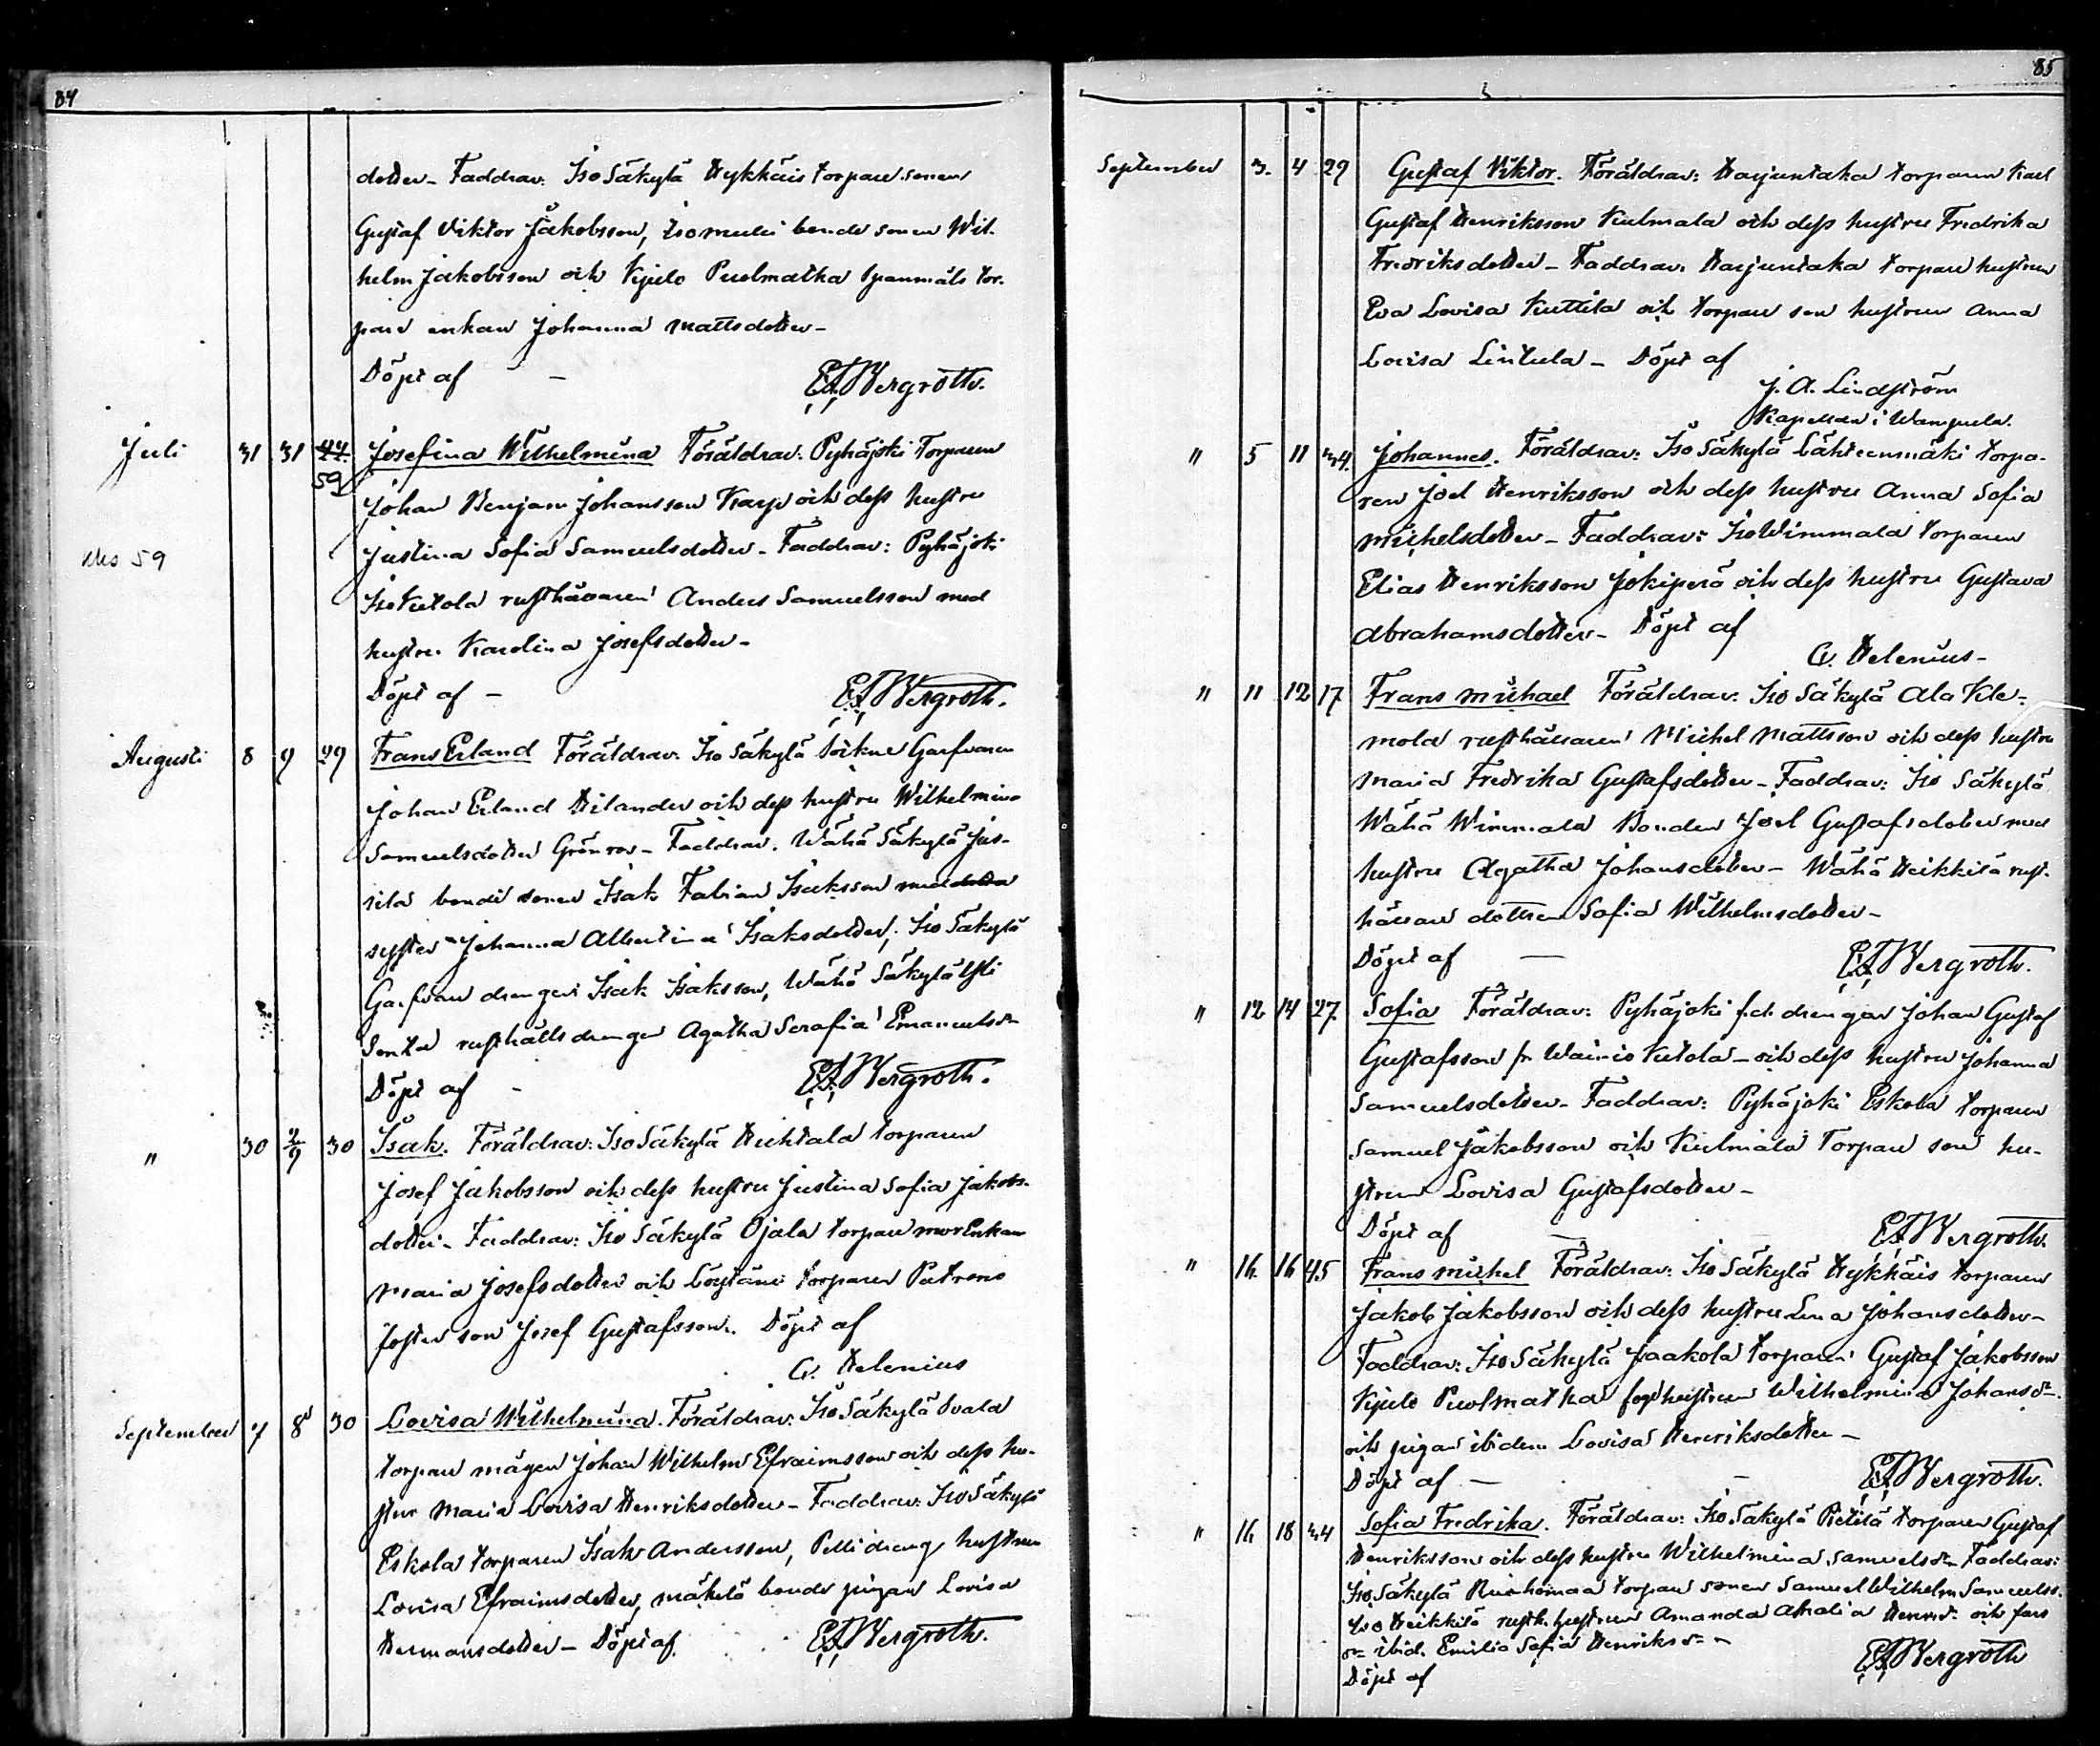 84
dotter - Faddrar: Iso Säkylä Hykkäis torpare sonen
Gustaf Viktor Jakobsson, Isomulu bonde sonen Wil-
helm Jakobsson och Kjulo Puolmatka Spanmäls tor-
pare enkan Johanna Mattsdotter -
Döpt af - E.A. Bergroth.
Juli 31 31 44 Josefina Wilhelmina Föräldrar: Pyhäjoki Torparen
59
Johan Benjam Johansson Karp och dess hustru
Nro 59 Justina Sofia Samuelsdotter - Faddrar: Pyhäjoki
Iso Kutola rusthållaren Anders Samuelsson med
hustru Karolina Josefsdotter -
Döpt af - E.A. Bergroth.
Augusti 8 9 29 Frans Erland Föräldrar: Iso Säkylä Sockne Garfvaren
Johan Erland Hilander och dess hustru Wilhelmina
Samuelsdotter Grönroos - Faddrar: Wähä Säkylä Jus-
sila bonde sonen Isak Fabian Isaksson med
syster Johanna Albertina Isaksdotter, Iso Säkylä
Garfvare drengen Isak Isaksson, Wähä Säkylä Yli
Sontla rusthålls drenge Agatha Serafia Emanuelsdr
Döpt af - E.A. Bergroth.
" 30 2/9 30 Isak. Föräldrar: Iso Säkylä Huhtala torparen
Josef Jakobsson och dess hustru Justina Sofia Jakobs-
dotter - Faddrar: Iso Säkylä Ojala torpare mor Enkan
Maria Josefsdotter och Löytäne torparen Patrons
foster son Josef Gustafsson. Döpt af
G. Helenius
September 7 8 30 Lovisa Wilhelmina. Föräldrar: Iso Säkylä Svala
torpare mågen Johan Wilhelm Efraimsson och dess hu-
stru Maria Lovisa Henriksdotter - Faddrar: Iso Säkylä
Eskola torparen Isak Andersson, Pelli dreng hustrun
Lovisa Efraimsdotter, Mäkelä bonde pigan Lovisa
Hermansdotter - Döpt af E.A. Bergroth.
85
September 3. 4 29 Gustaf Viktor. Föräldrar: Harjuntaka torparen Karl
Gustaf Henriksson Kulmala och dess hustru Fredrika
Fredriksdotter - Faddrar: Harjuntaka torpare hustrun
Eva Lovisa Kuttila och torpare son hustrun Anna
Lovisa Lintula - Döpt af
J. A. Lindström
Kapellan i Wampula.
" 5 11 34. Johannes. Föräldrar: Iso Säkylä Lähteenmäki torpa-
ren Joel Henriksson och dess hustru Anna Sofia
Michelsdotter - Faddrar: Iso Wimmala torparen
Elias Henriksson Jokiperä och dess hustru Gustava
Abrahamsdotter - Döpt af
G. Helenius -
" 11 12 17 Frans Michael Föräldrar: Iso Säkylä Ala Kle-
mola rusthållaren Michel Mattsson och dess hustru
Maria Fredrika Gustafsdotter - Faddrar: Iso Säkylä
Wähä Wimmala Bonden Joel Gustafsdotter med
hustru Agatha Johansdotter - Wähä Heikkilä rust-
hållare dottren Sofia Wilhelmsdotter -
Döpt af - E.A. Bergroth.
" 12 14 27. Sofia Föräldrar: Pyhäjoki f.d. drengen Johan Gustaf
Gustafsson fr Wainio Kutola - och dess hustru Johanna
Samuelsdotter - Faddrar: Pyhäjoki Eskola torparen
Samuel Jakobsson och Kulmala Torpare son hu-
strun Lovisa Gustafsdotter -
Döpt af - E.A. Bergroth.
" 16. 16 45 Frans Michel Föräldrar: Iso Säkylä Hykkäis torparen
Jakob Jakobsson och dess hustru Lena Johansdotter -
Faddrar: Iso Säkylä Jaakola torparen Gustaf Jakobsson
Kjulo Puolmatka hustrun Wilhelmina Johansdr.
och pigan ibidem Lovisa Henriksdotter -
Döpt af - E.A. Bergroth.
" 16 18 44 Sofia Fredrika. Föräldrar: Iso Säkylä Pietilä torparen Gustaf
Henriksson och dess hustru Wilhelmina Samuelsdr Faddrar:
Iso Säkylä torpare sonen Samuel Wilhelm Samuelss.
Iso Heikkilä rusth. hustrun Amanda Athalia Henrdr. och
dr ibid. Emilia Sofia Henriksdr -
Döpt af E.A. Bergroth